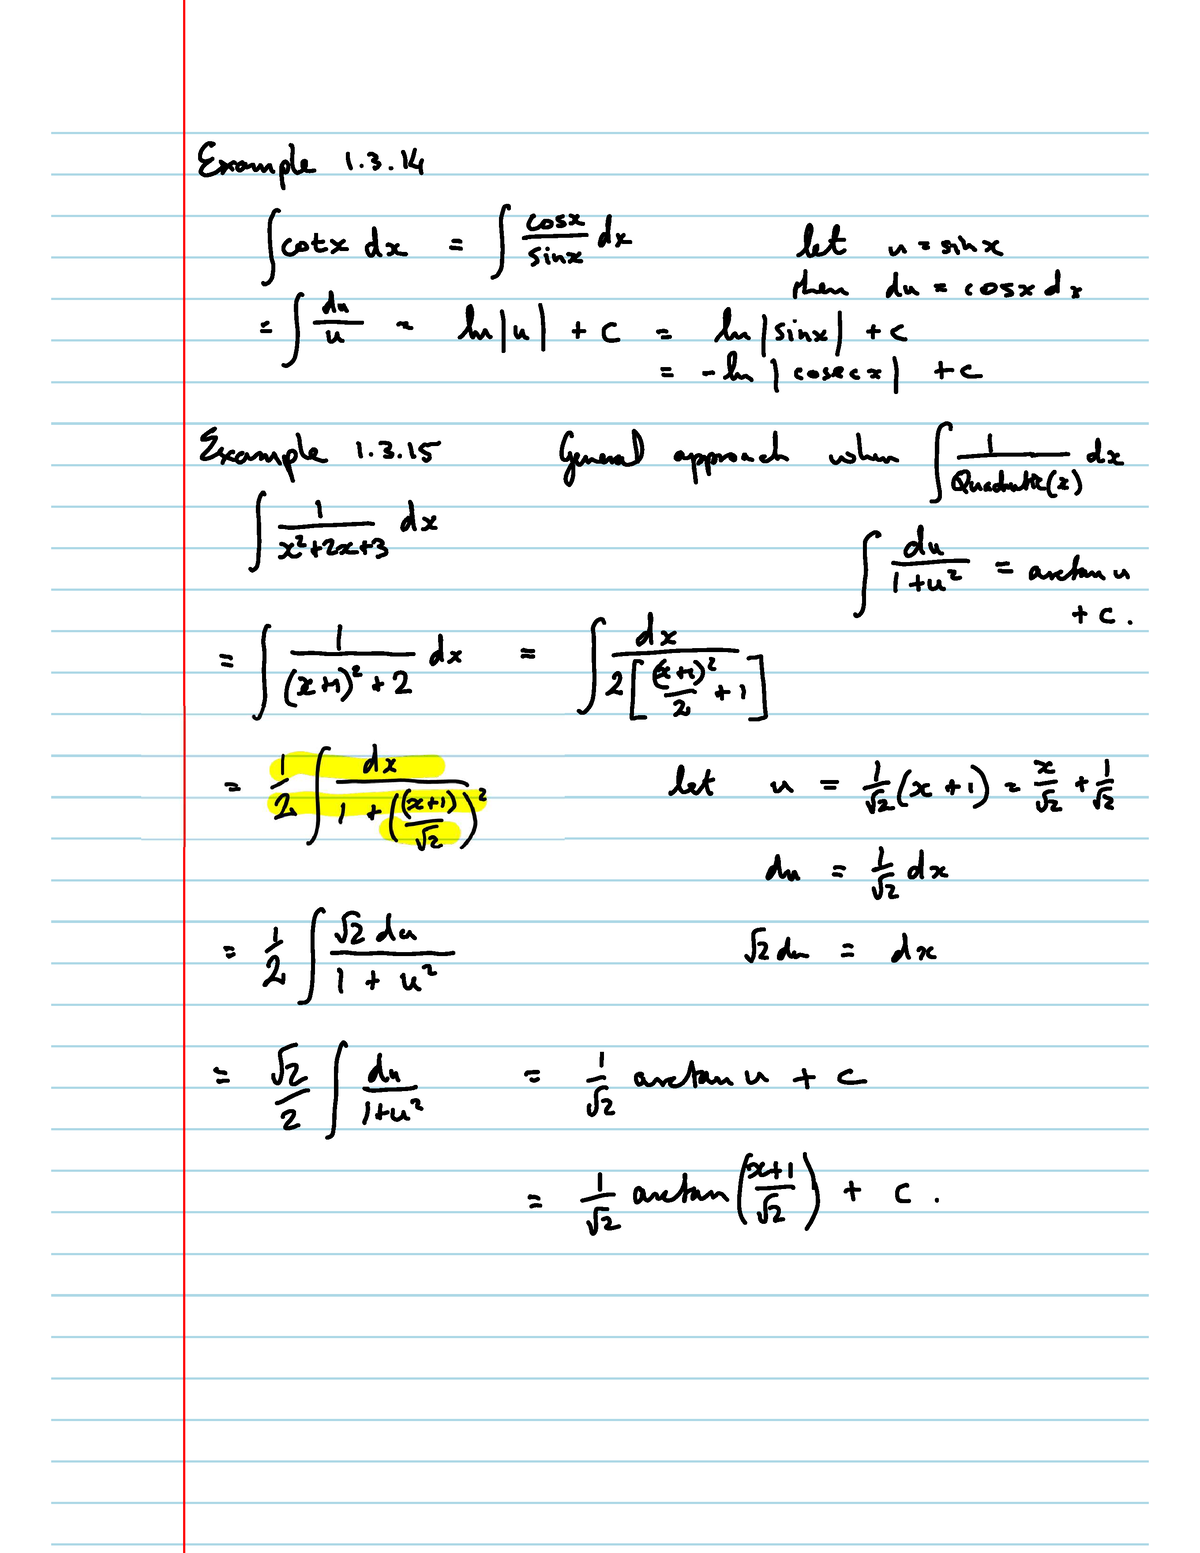 Example 1.3.14
∫cotx dx = ∫ cosx/sinx dx let u = sinx
then du = cosx dx
= ∫ du/u = ln|u| + c = ln|sinx| + c
= -ln|cosecx| + c
Example 1.3.15 General approach when ∫ 1/Quadratic(x) dx
∫ 1/(x²+2x+3) dx
∫ du/(1+u²) = arctan u
+ c.
= ∫ 1/((x+1)²+2) dx = ∫ dx/(2[(x+1)²/2 + 1])
= 1/2 ∫ dx/(1 + ((x+1)/√2)²) let u = 1/√2 (x+1) = x/√2 + 1/√2
du = 1/√2 dx
= 1/2 ∫ √2 du/(1 + u²) √2 du = dx
= √2/2 ∫ du/(1+u²) = 1/√2 arctan u + c
= 1/√2 arctan((x+1)/√2) + c .